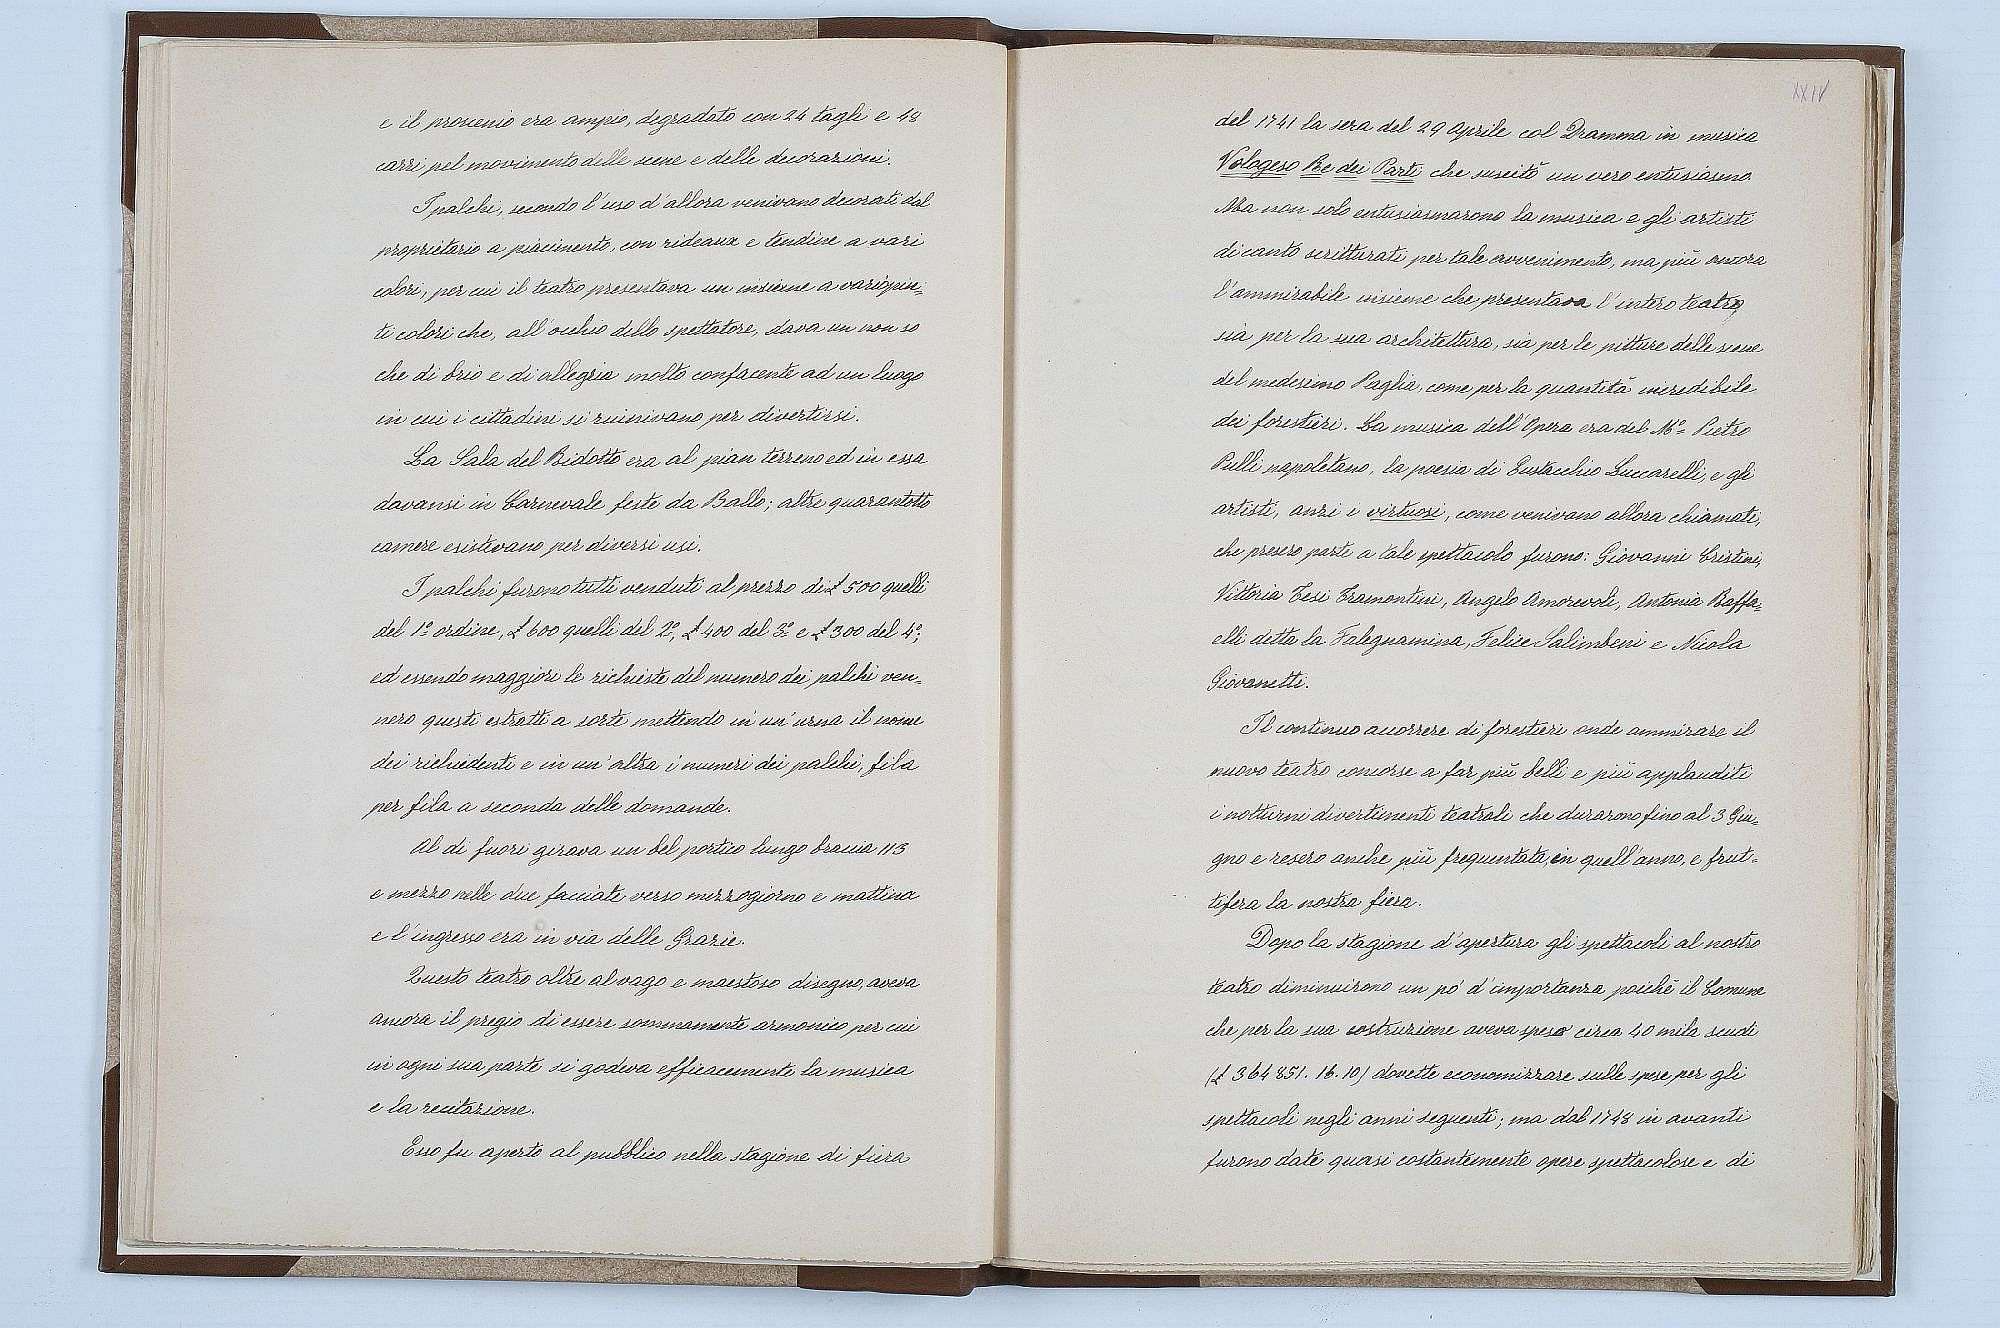 e il proscenio era ampio, degradato con 24 tagli e 48
carri pel movimento delle scene e delle decorazioni.
I palchi, secondo l'uso d'allora venivano decorati dal
proprietario a piacimento, con rideaux e tendine a vari
colori, per cui il teatro presentava un insieme a variopin=
ti colori che, all'occhio dello spettatore, dava un non so
che di brio e di allegria molto confacente ad un luogo
in cui i cittadini si riunivano per divertirsi.
La Sala del Ridotto era al pian terreno ed in essa
davansi in Carnevale feste da Ballo; altre quarantotto
camere esistevano per diversi usi.
I palchi furono tutti venduti al prezzo di £ 500 quelli
del 1º ordine, £ 600 quelli del 2º, £ 400 del 3º e £ 300 del 4º;
ed essendo maggiori le richieste del numero dei palchi ven=
nero questi estratti a sorte mettendo in un'urna il nome
dei richiedenti e in un'altra i numeri dei palchi, fila
per fila a seconda delle domande.
Al di fuori girava un bel portico lungo braccia 113
e mezzo nelle due facciate verso mezzogiorno e mattina
e l'ingresso era in via delle Grazie.
Questo teatro oltre al vago e maestoso disegno, aveva
ancora il pregio di essere sommamente armonico per cui
in ogni sua parte si godeva efficacemente la musica
e la recitazione.
Esso fu aperto al pubblico nella stagione di fiera
XXIV
del 1741 la sera del 29 Aprile col Dramma in musica
Vologeso Re dei Parti che suscitò un vero entusiasmo
Ma non solo entusiasmarono la musica e gli artisti
di canto scritturati per tale avvenimento, ma più ancora
l'ammirabile insieme che presentava l'intero teatro,
sia per la sua architettura, sia per le pitture delle scene
del medesimo Paglia, come per la quantità incredibile
dei forestieri. La musica dell'Opera era del Mº Pietro
Pulli napoletano, la poesia di Eustacchio Luccarelli, e gli
artisti, anzi i virtuosi, come venivano allora chiamati,
che presero parte a tale spettacolo furono: Giovanni Cristini,
Vittoria Tesi Tramontini, Angelo Amorevoli, Antonia Raffa=
elli detta la Falegnamina, Felice Salimbeni e Nicola
Giovanetti.
Il continuo accorrere di forestieri onde ammirare il
nuovo teatro concorse a far più belli e più applauditi
i notturni divertimenti teatrali che durarono fino al 3 Giu=
gno e resero anche più frequentata, in quell'anno, e frut=
tifera la nostra fiera.
Dopo la stagione d'apertura gli spettacoli al nostro
teatro diminuirono un pò d'importanza poichè il Comune
che per la sua costruzione aveva speso circa 40 mila scudi
(£ 364851. 16. 10) dovette economizzare sulle spese per gli
spettacoli negli anni seguenti; ma dal 1748 in avanti
furono date quasi costantemente opere spettacolose e di